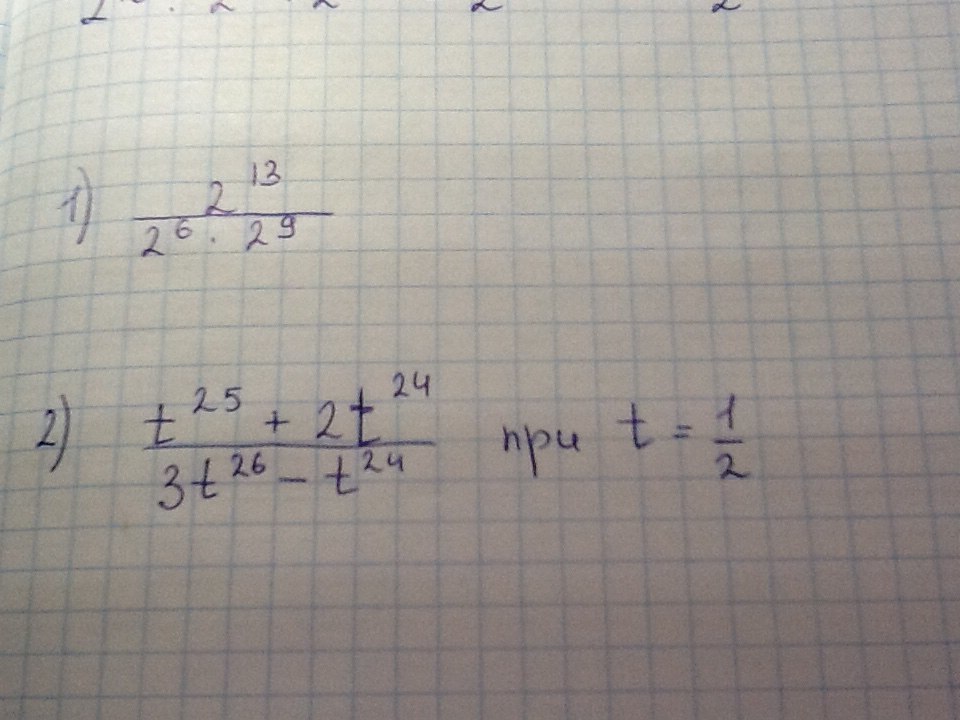 1) 2^13 / (2^6 · 2^9)
2) (t^25 + 2t^24) / (3t^26 − t^24) при t = 1/2